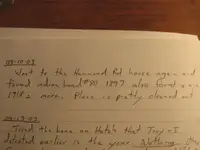 09-10-03
Went to the Hammond Rd house again and
found indian head #90 1897 also found a
1918 s merc. Place is pretty cleaned out
09-13-03
Tried the bone on Hatch that Troy & I
detected earlier in the year. Nothing